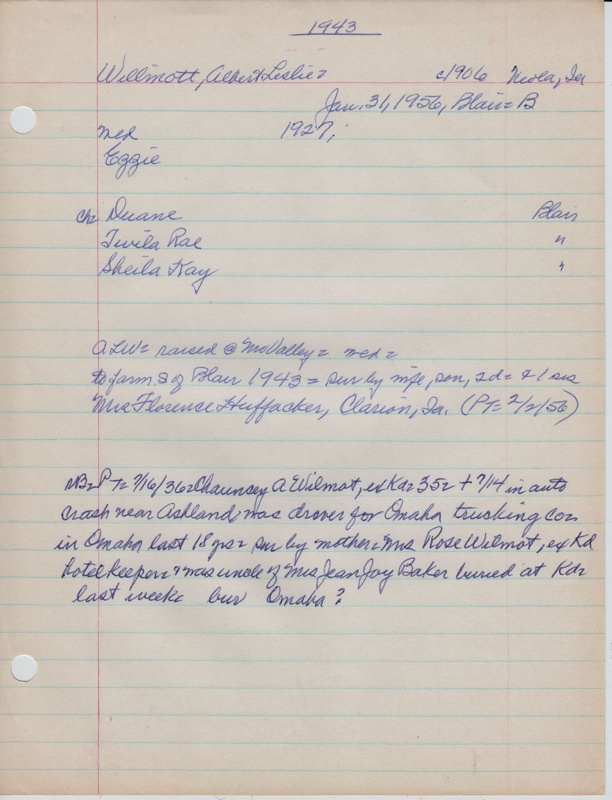 1943
Willmott, Albert Leslie = c1906 Neola, Ia
Jan. 31, 1956, Blair = B
med 1927;
Eggie
ch= Duane Blair
Twila Rae "
Sheila Kay "
ALW = raised @ Mo Valley = med =
to farm S of Blair 1943 = sur by wife, son, 2d = & 1 sis
Mrs Florence Huffacker, Clarion, Ia. (PT = 2/2/56)
NB = PT = 7/16/36 = Chauncey A Wilmot, ex Kd = 35 = + 7/14 in auto
crash near Ashland, was driver for Omaha trucking co =
in Omaha last 18 yrs = sur by mother = Mrs Rose Wilmot, ex Kd
hotel keeper = & was uncle of Mrs Jean Joy Baker buried at Kd =
last week = bur Omaha?